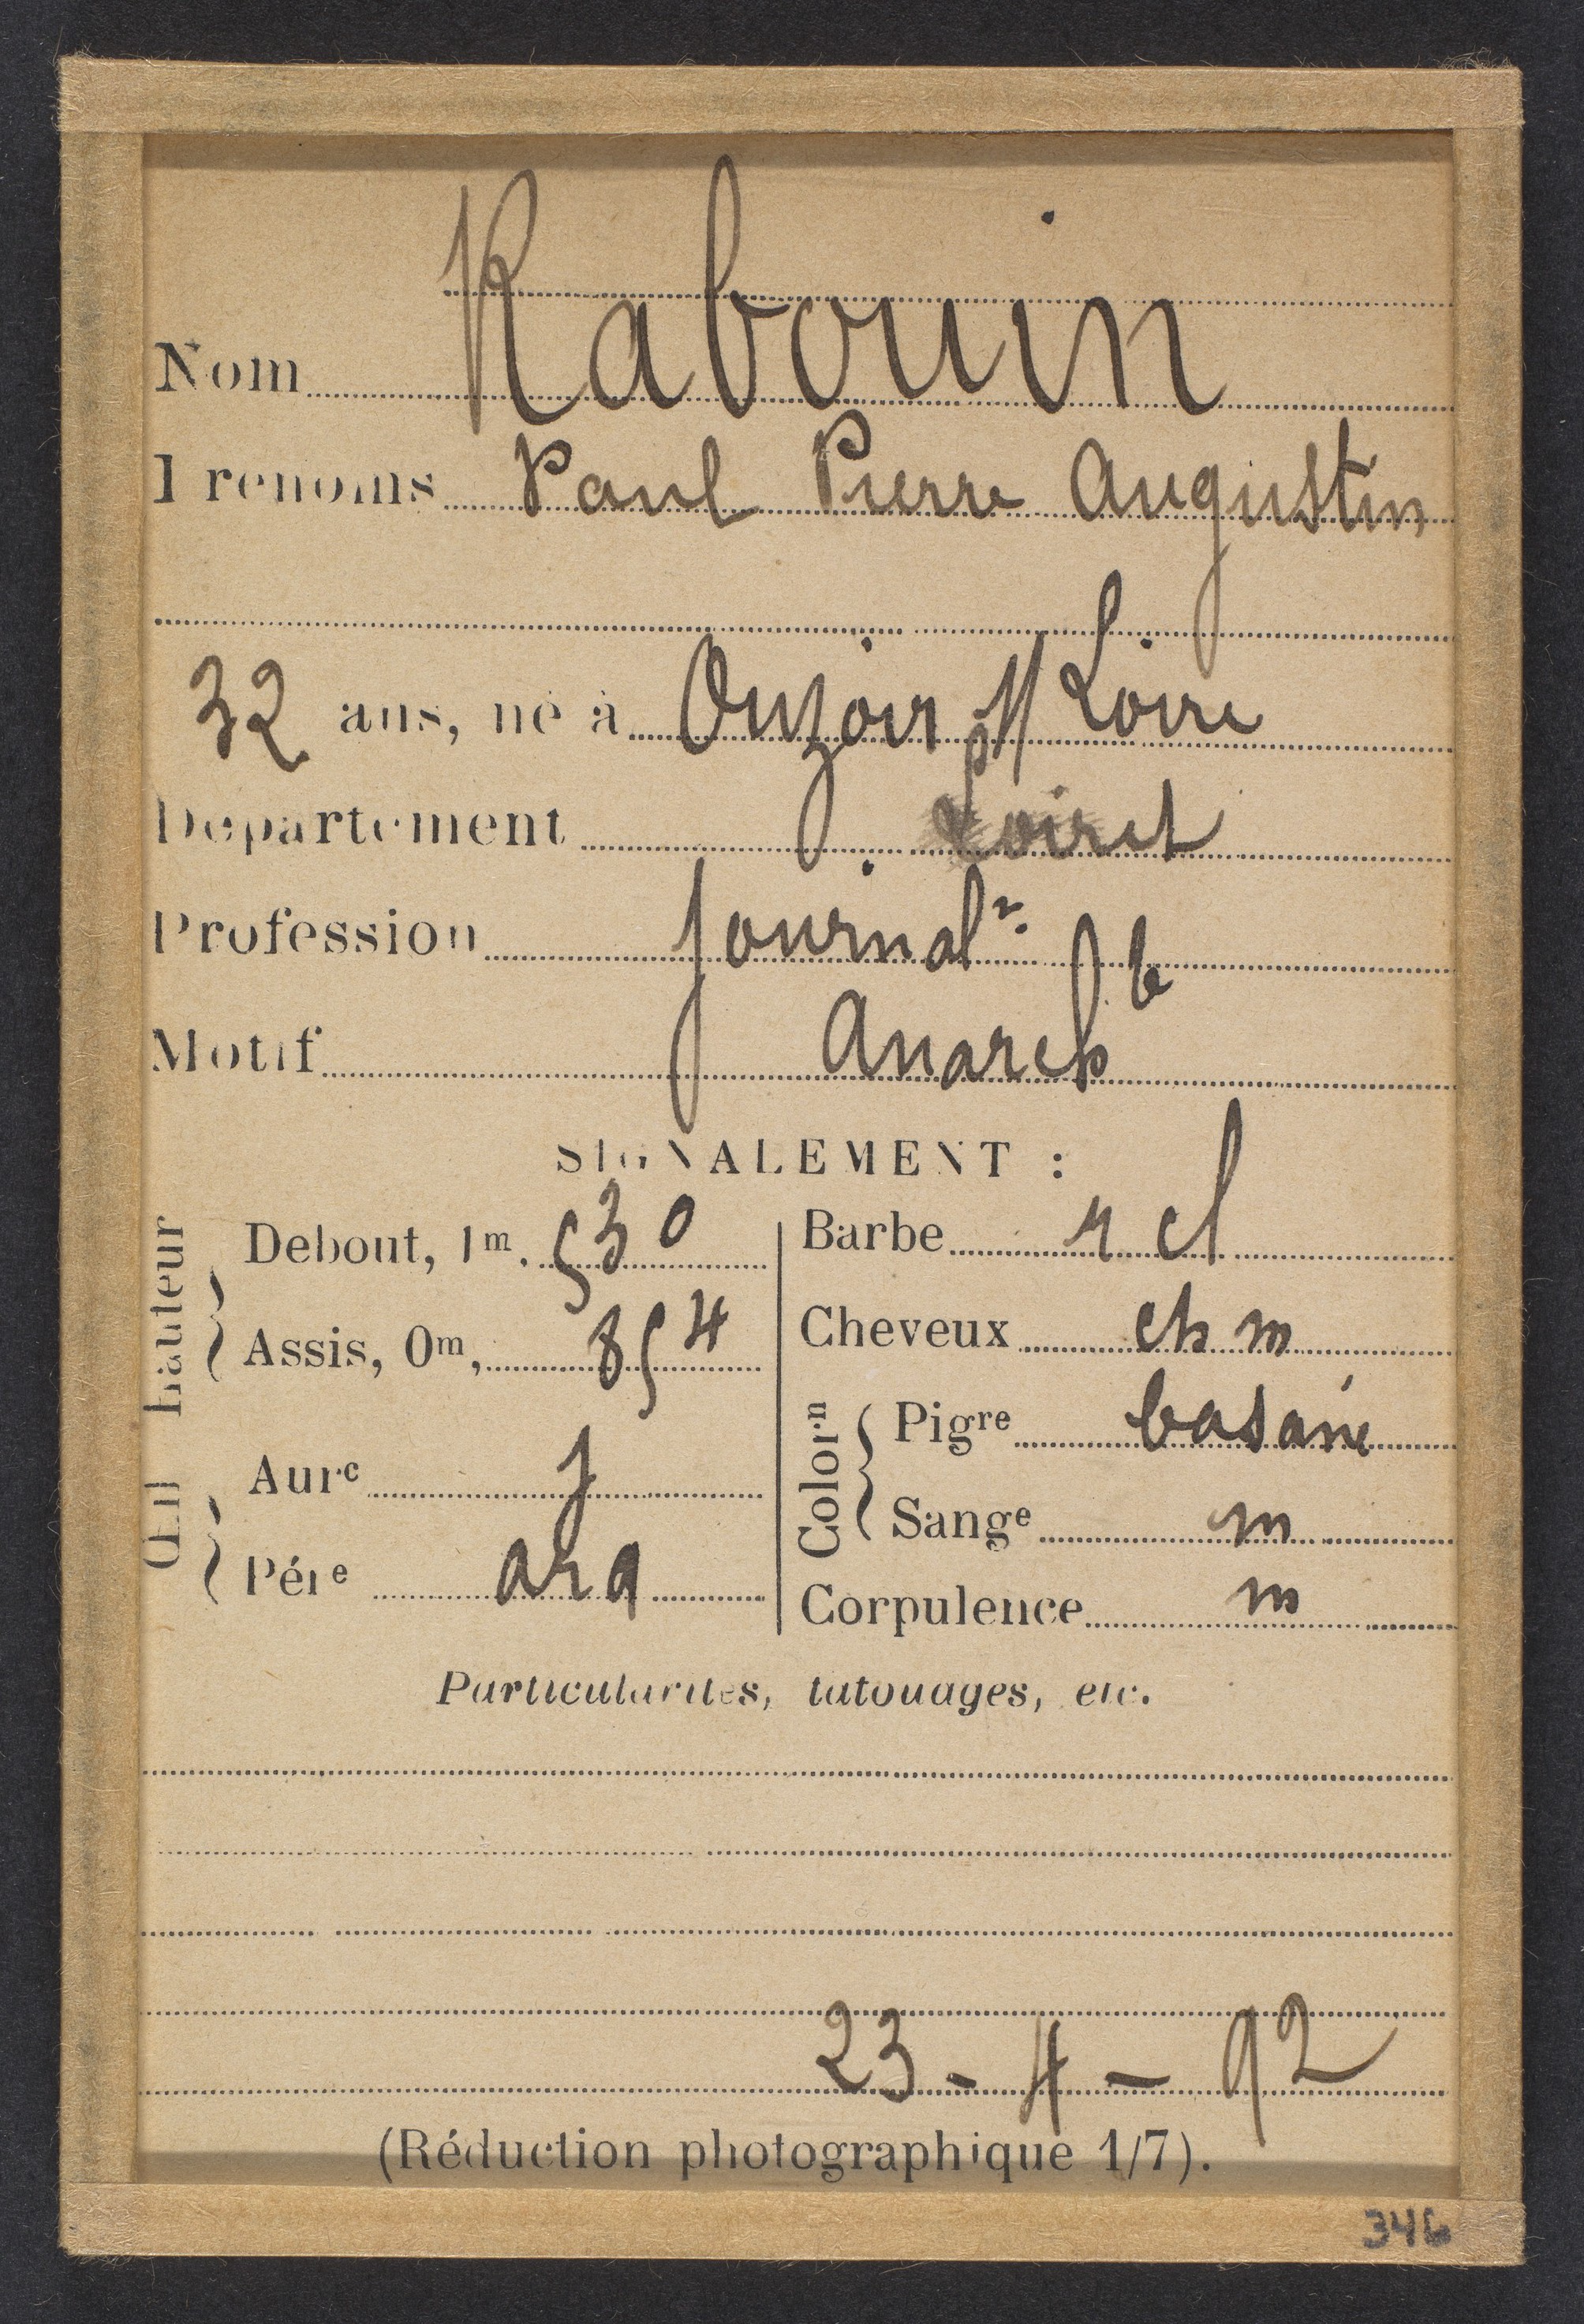 Nom Rabouin
Prenoms Paul Pierre Augustin
32 ans, né à Ouzoir s/ Loire
Département Loiret
Profession Journalr.
Motif Anarchte
SIGNALEMENT :
hauteur
Debout, 1m. 530
Assis, 0m, 854
Œil
Aurc j
Pére arq
Barbe r cl
Cheveux ch m
Colorn
Pigre basané
Sange m
Corpulence m
Particularités, tatouages, etc.
23 - 4 - 92
(Réduction photographique 1/7).
346